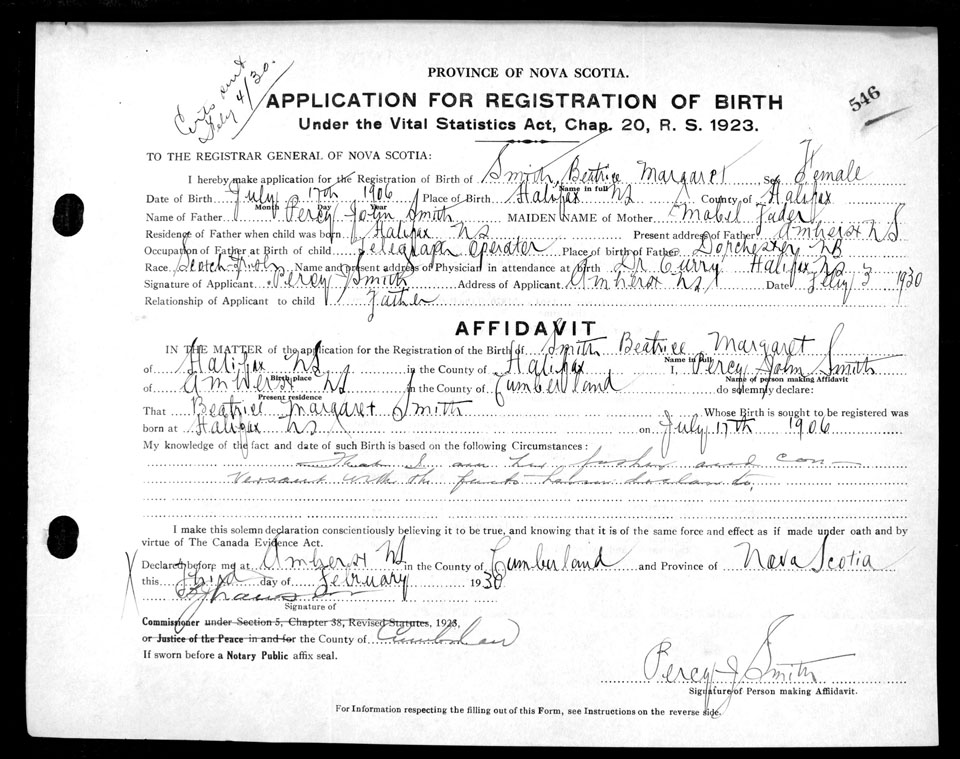 Certs sent
Feby 4/30.
546
PROVINCE OF NOVA SCOTIA.
APPLICATION FOR REGISTRATION OF BIRTH
Under the Vital Statistics Act, Chap. 20, R. S. 1923.
TO THE REGISTRAR GENERAL OF NOVA SCOTIA:
I hereby make application for the Registration of Birth of Smith, Beatrice Margaret Sex Female
Name in full
Date of Birth July 17th 1906 Place of Birth Halifax NS County of Halifax
Month Day Year
Name of Father Percy John Smith MAIDEN NAME of Mother Mabel Fader
Residence of Father when child was born Halifax NS Present address of Father Amherst NS
Occupation of Father at Birth of child Telegraph Operator Place of birth of Father Dorchester NB
Race Scotch Name and present address of Physician in attendance at birth Dr Curry Halifax NS
Signature of Applicant Percy J Smith Address of Applicant Amherst NS Date Feby 3 1930
Relationship of Applicant to child Father
AFFIDAVIT
IN THE MATTER of the application for the Registration of the Birth of Smith Beatrice Margaret
Name in full
of Halifax NS in the County of Halifax I, Percy John Smith
Birth place Name of person making Affidavit
of Amherst NS in the County of Cumberland do solemnly declare:
Present residence
That Beatrice Margaret Smith Whose Birth is sought to be registered was
born at Halifax NS on July 17th 1906
My knowledge of the fact and date of such Birth is based on the following Circumstances:
That I am her father and con-
versant with the facts herein declared to.
I make this solemn declaration conscientiously believing it to be true, and knowing that it is of the same force and effect as if made under oath and by
virtue of The Canada Evidence Act.
X Declared before me at Amherst NS in the County of Cumberland and Province of Nova Scotia
this Third day of February 1930
Signature of
Commissioner under Section 5, Chapter 38, Revised Statutes, 1923,
or Justice of the Peace in and for the County of Cumberland
If sworn before a Notary Public affix seal.
Percy J Smith
Signature of Person making Affidavit.
For Information respecting the filling out of this Form, see Instructions on the reverse side.